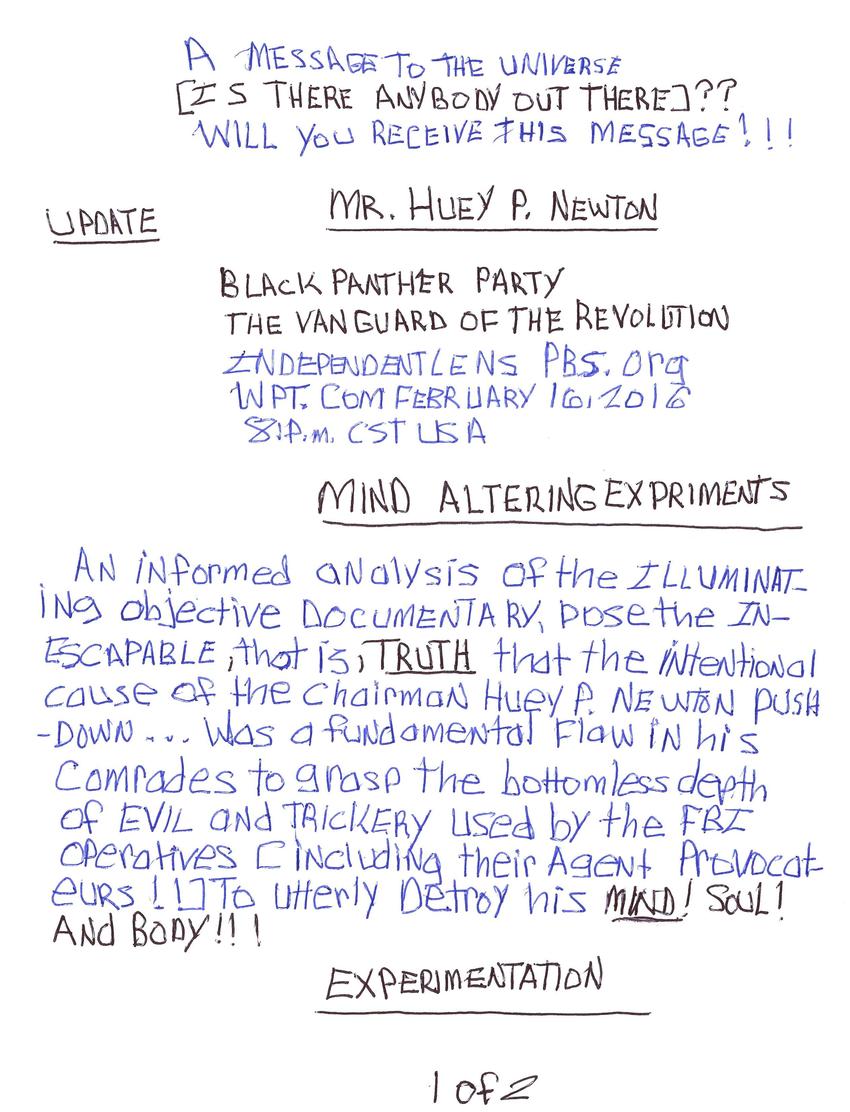 A MESSAGE TO THE UNIVERSE
[IS THERE ANYBODY OUT THERE]??
WILL YOU RECEIVE THIS MESSAGE!!!
MR. HUEY P. NEWTON
UPDATE
BLACK PANTHER PARTY
THE VANGUARD OF THE REVOLUTION
INDEPENDENTLENS PBS.org
WPT.COM FEBRUARY 16, 2016
8:P.m. CST USA
MIND ALTERING EXPRIMENTS
AN iNformed aNalysis of the ILLUMINAT-
iNg objective DOCUMENTARY, pose the IN-
ESCAPABLE, that is, TRUTH that the iNteNtioNal
cause of the ChairmaN Huey P. NEWTON PUSH
-DOWN... Was a fuNdameNtal Flaw iN his
Comrades to grasp the bottomless depth
of EVIL aND TRICKERY used by the FBI
operatives [iNcluding their AgeNt Provocat-
eurs!!] To utterly Detroy his MIND! SOUL!
AND BODY!!!
EXPERIMENTATION
1 of 2